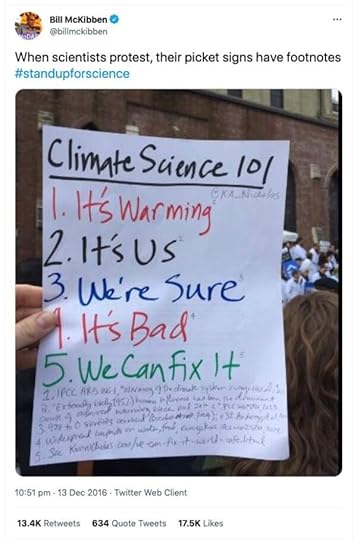 Bill McKibben
@billmckibben
When scientists protest, their picket signs have footnotes
#standupforscience
Climate Science 101
@KA_Nicholas
1. It's Warming¹
2. It's Us²
3. We're Sure³
4. It's Bad⁴
5. We Can Fix It⁵
1. IPCC AR5 WG1, "Warming of the climate system is unequivocal."
2. "Extremely likely (95%) human influence has been the dominant
cause of observed warming since mid 20th c." IPCC
3. 928 to 0 scientists
4. Widespread impacts on water, food,
5. See
10:51 pm · 13 Dec 2016 · Twitter Web Client
13.4K Retweets 634 Quote Tweets 17.5K Likes